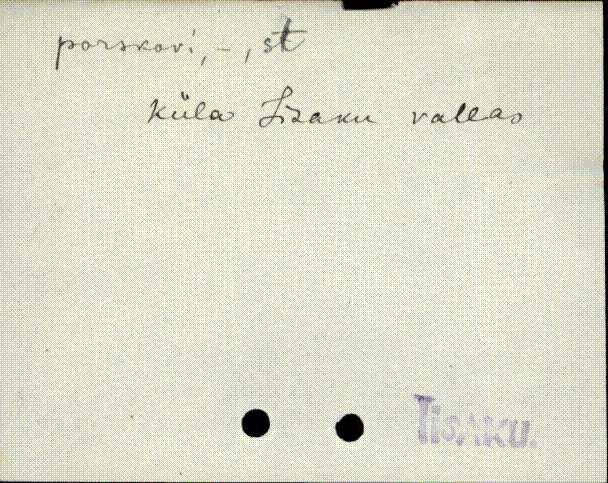 porskovi, -, st
Küla Iisaku vallas
Iisaku.